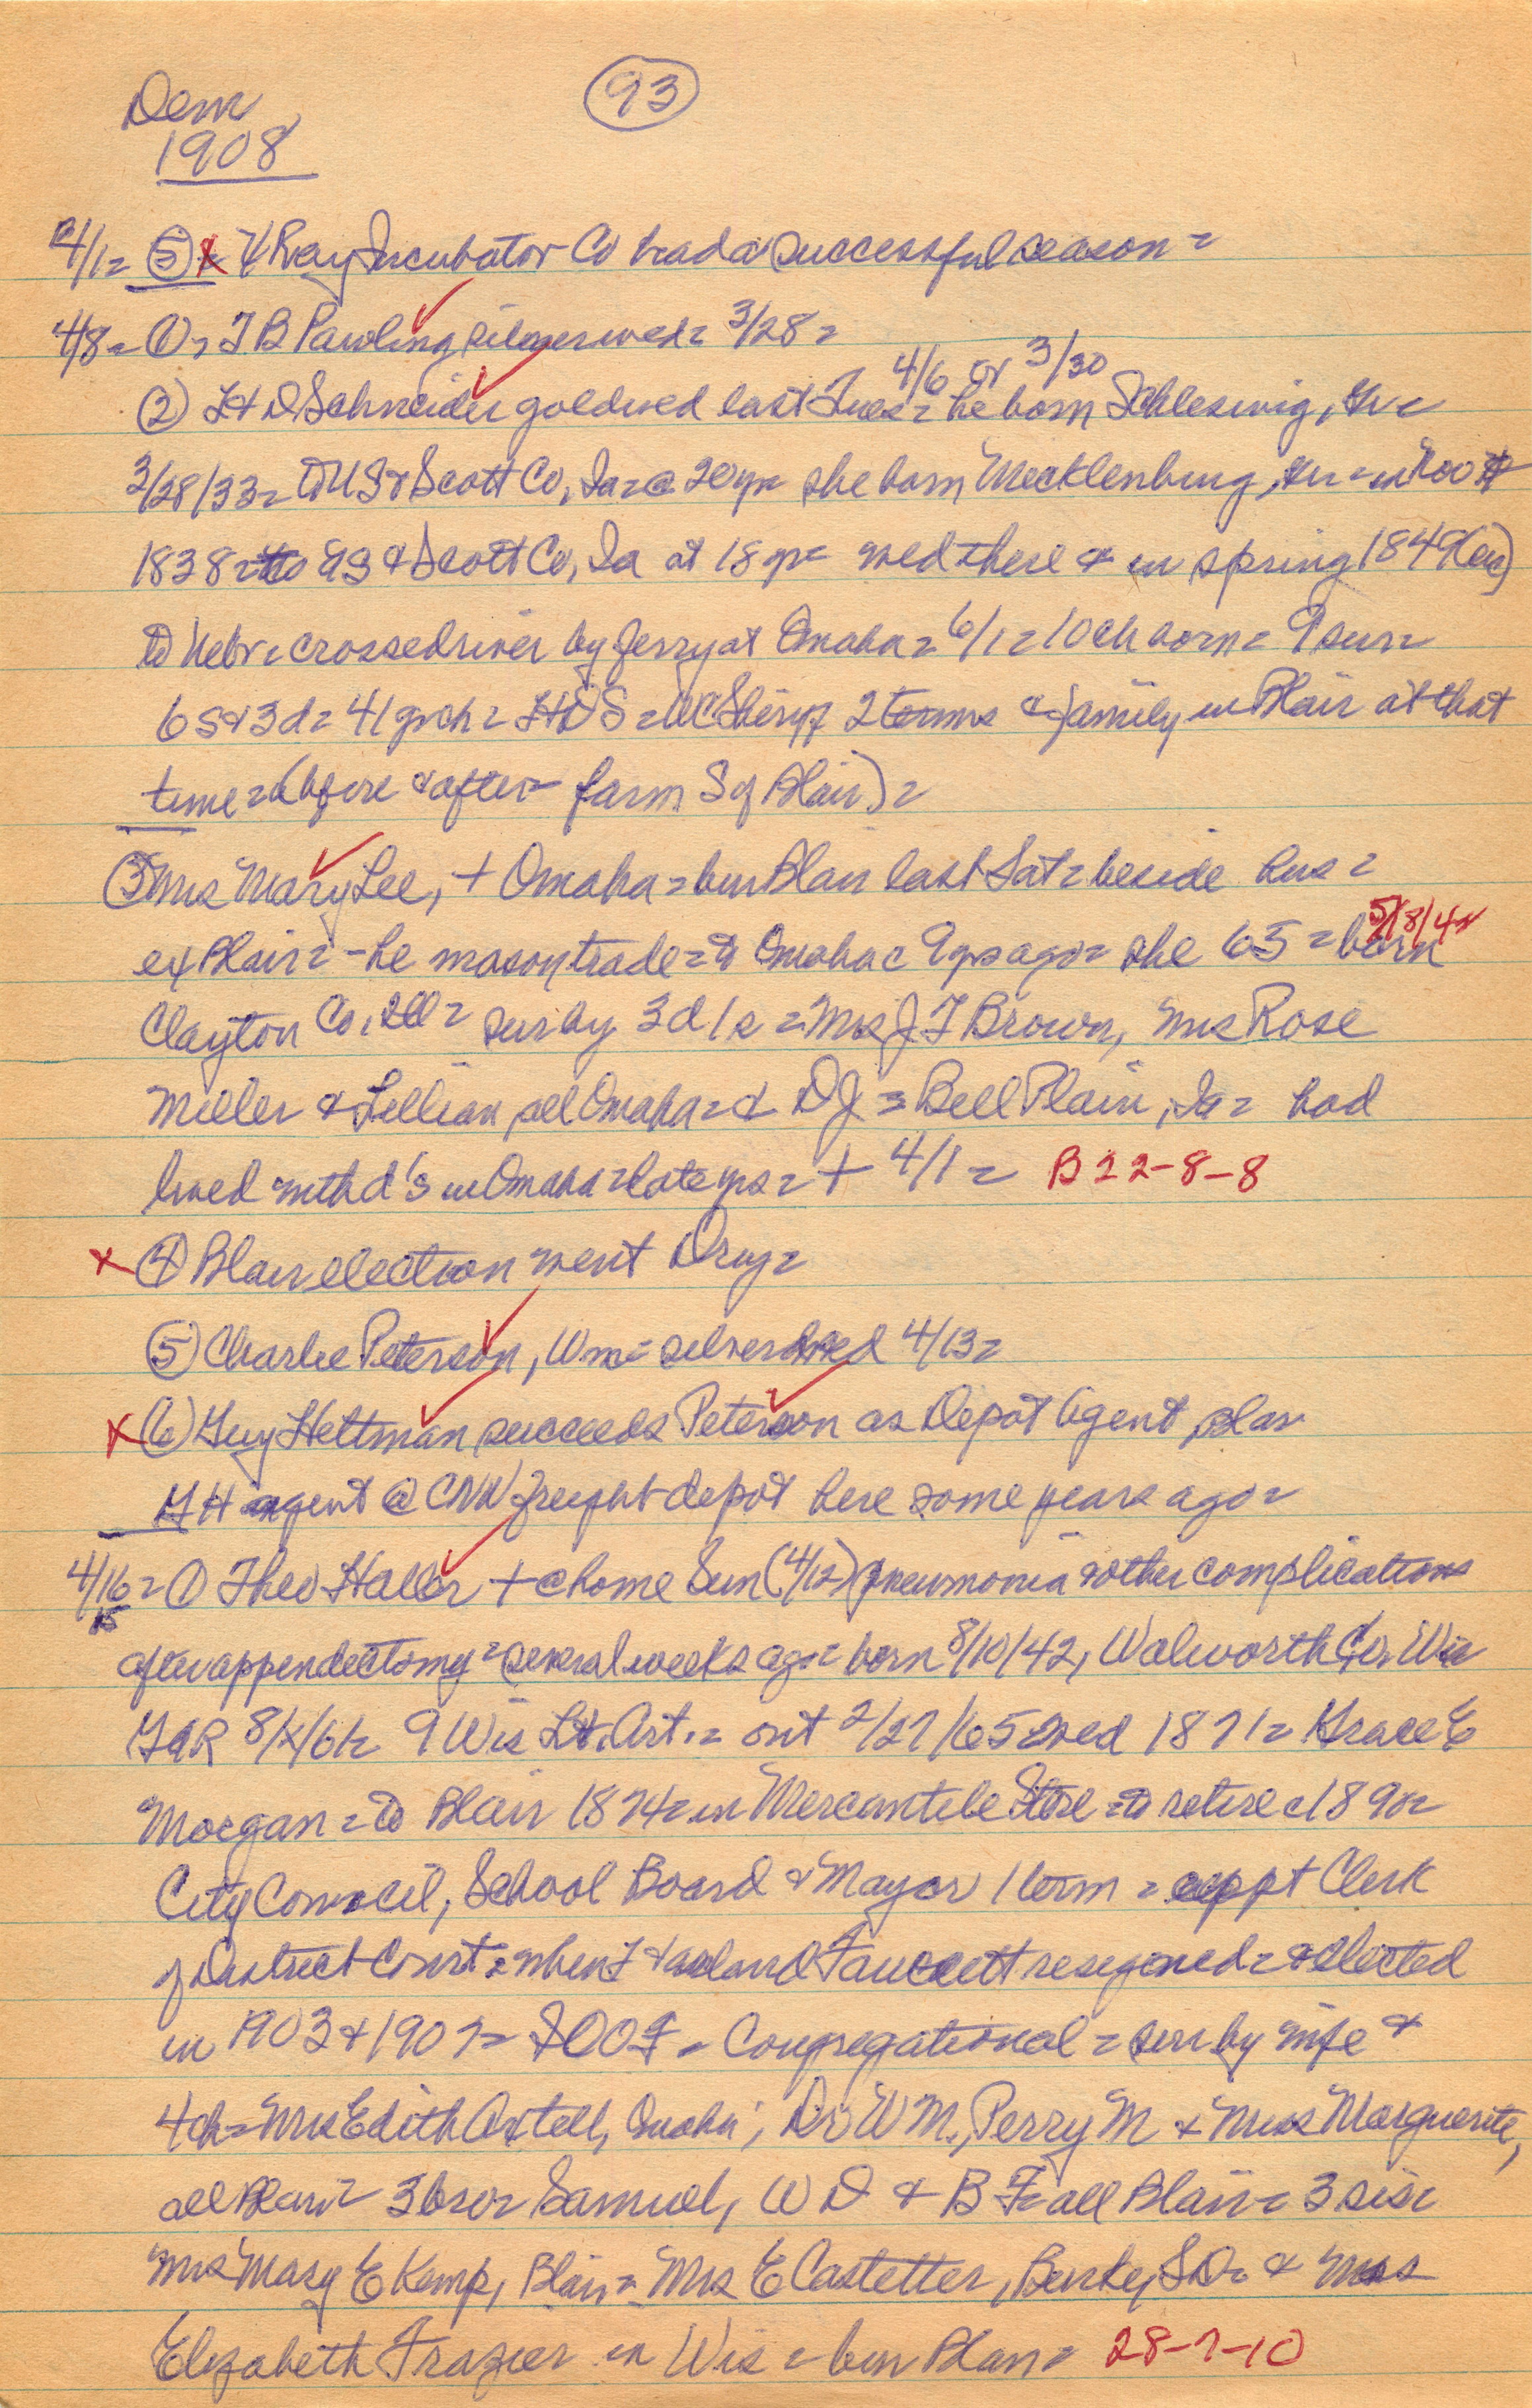 93
Dem
1908
4/1= ⑤ x X Ray Incubator Co had a successful season =
4/8= ① = T B Pawling silver wed = 3/28 =
4/6 or 3/30
② H D Schneider gold wed last Tues = he born Schleswig, Ger =
3/28/33 = to US & Scott Co, Ia = @ 20 yr = she born Mecklenburg, Ger =
1838 = to US & Scott Co, Ia at 18 yr = wed there & in spring 1849
to Nebr = crossed river by ferry at Omaha = 6/1 = 10 ch born = 9 sur =
6 s & 3 d = 41 gr ch = H D S = WC Sheriff 2 terms & family in Blair at that
time = (before & after farm S of Blair) =
③ Mrs Mary Lee, + Omaha = bur Blair last Sat = beside hus =
5/18/42
ex Blair = - he mason trade = to Omaha c 9 yrs ago = she 65 = born
Clayton Co, Ill = sur by 3 d 1 s = Mrs J F Brown, Mrs Rose
Miller & Lillian, all Omaha = & D J = Bell Plain, Ia = had
lived with d's in Omaha = late yrs = + 4/1 = B 22-8-8
x ④ Blair election went Dry =
⑤ Charlie Peterson, Wm = silver wed 4/13 =
x ⑥ Guy Hettman succeeds Peterson as Depot Agent, Blair
G H agent @ CNW freight depot here some years ago =
4/16 = ① Theo Haller + @ home Sun (4/12) pneumonia & other complications
15
after appendectomy = several weeks ago = born 8/10/42, Walworth Co, Wis
GAR 9 Wis Lt. Art. = out 2/27/65 = wed 1871 = Grace E
Morgan = to Blair 1874 = in Mercantile Store = to retire c 1890 =
City Council, School Board & Mayor 1 term = appt Clerk
of District Court = when Faucett resigned = & elected
in 1903 & 1907 = IOOF = Congregational = sur by wife &
4 ch = Mrs Edith Axtell, Omaha; Dr W M., Perry M & Miss Marguerite,
all Blair = 3 bro = Samuel, W D & B F = all Blair = 3 sis =
Mrs Mary E Kemp, Blair = Mrs E Castetter, SD = & Mrs
Elizabeth Frazier in Wis = bur Blair = 28-7-10